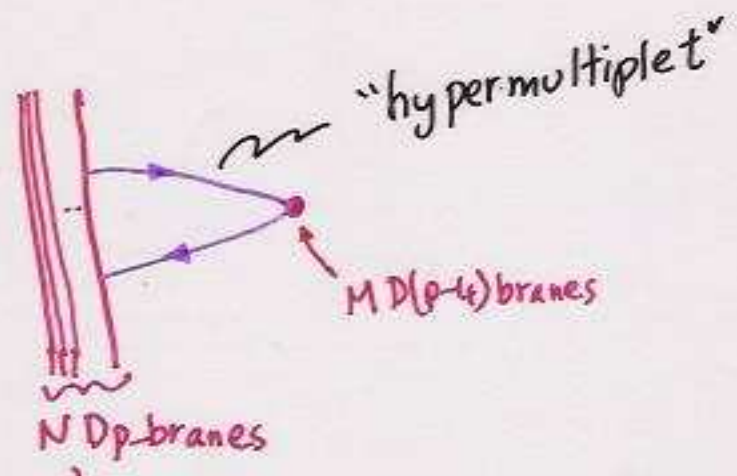 "hypermultiplet"
M D(p-4) branes
N Dp-branes